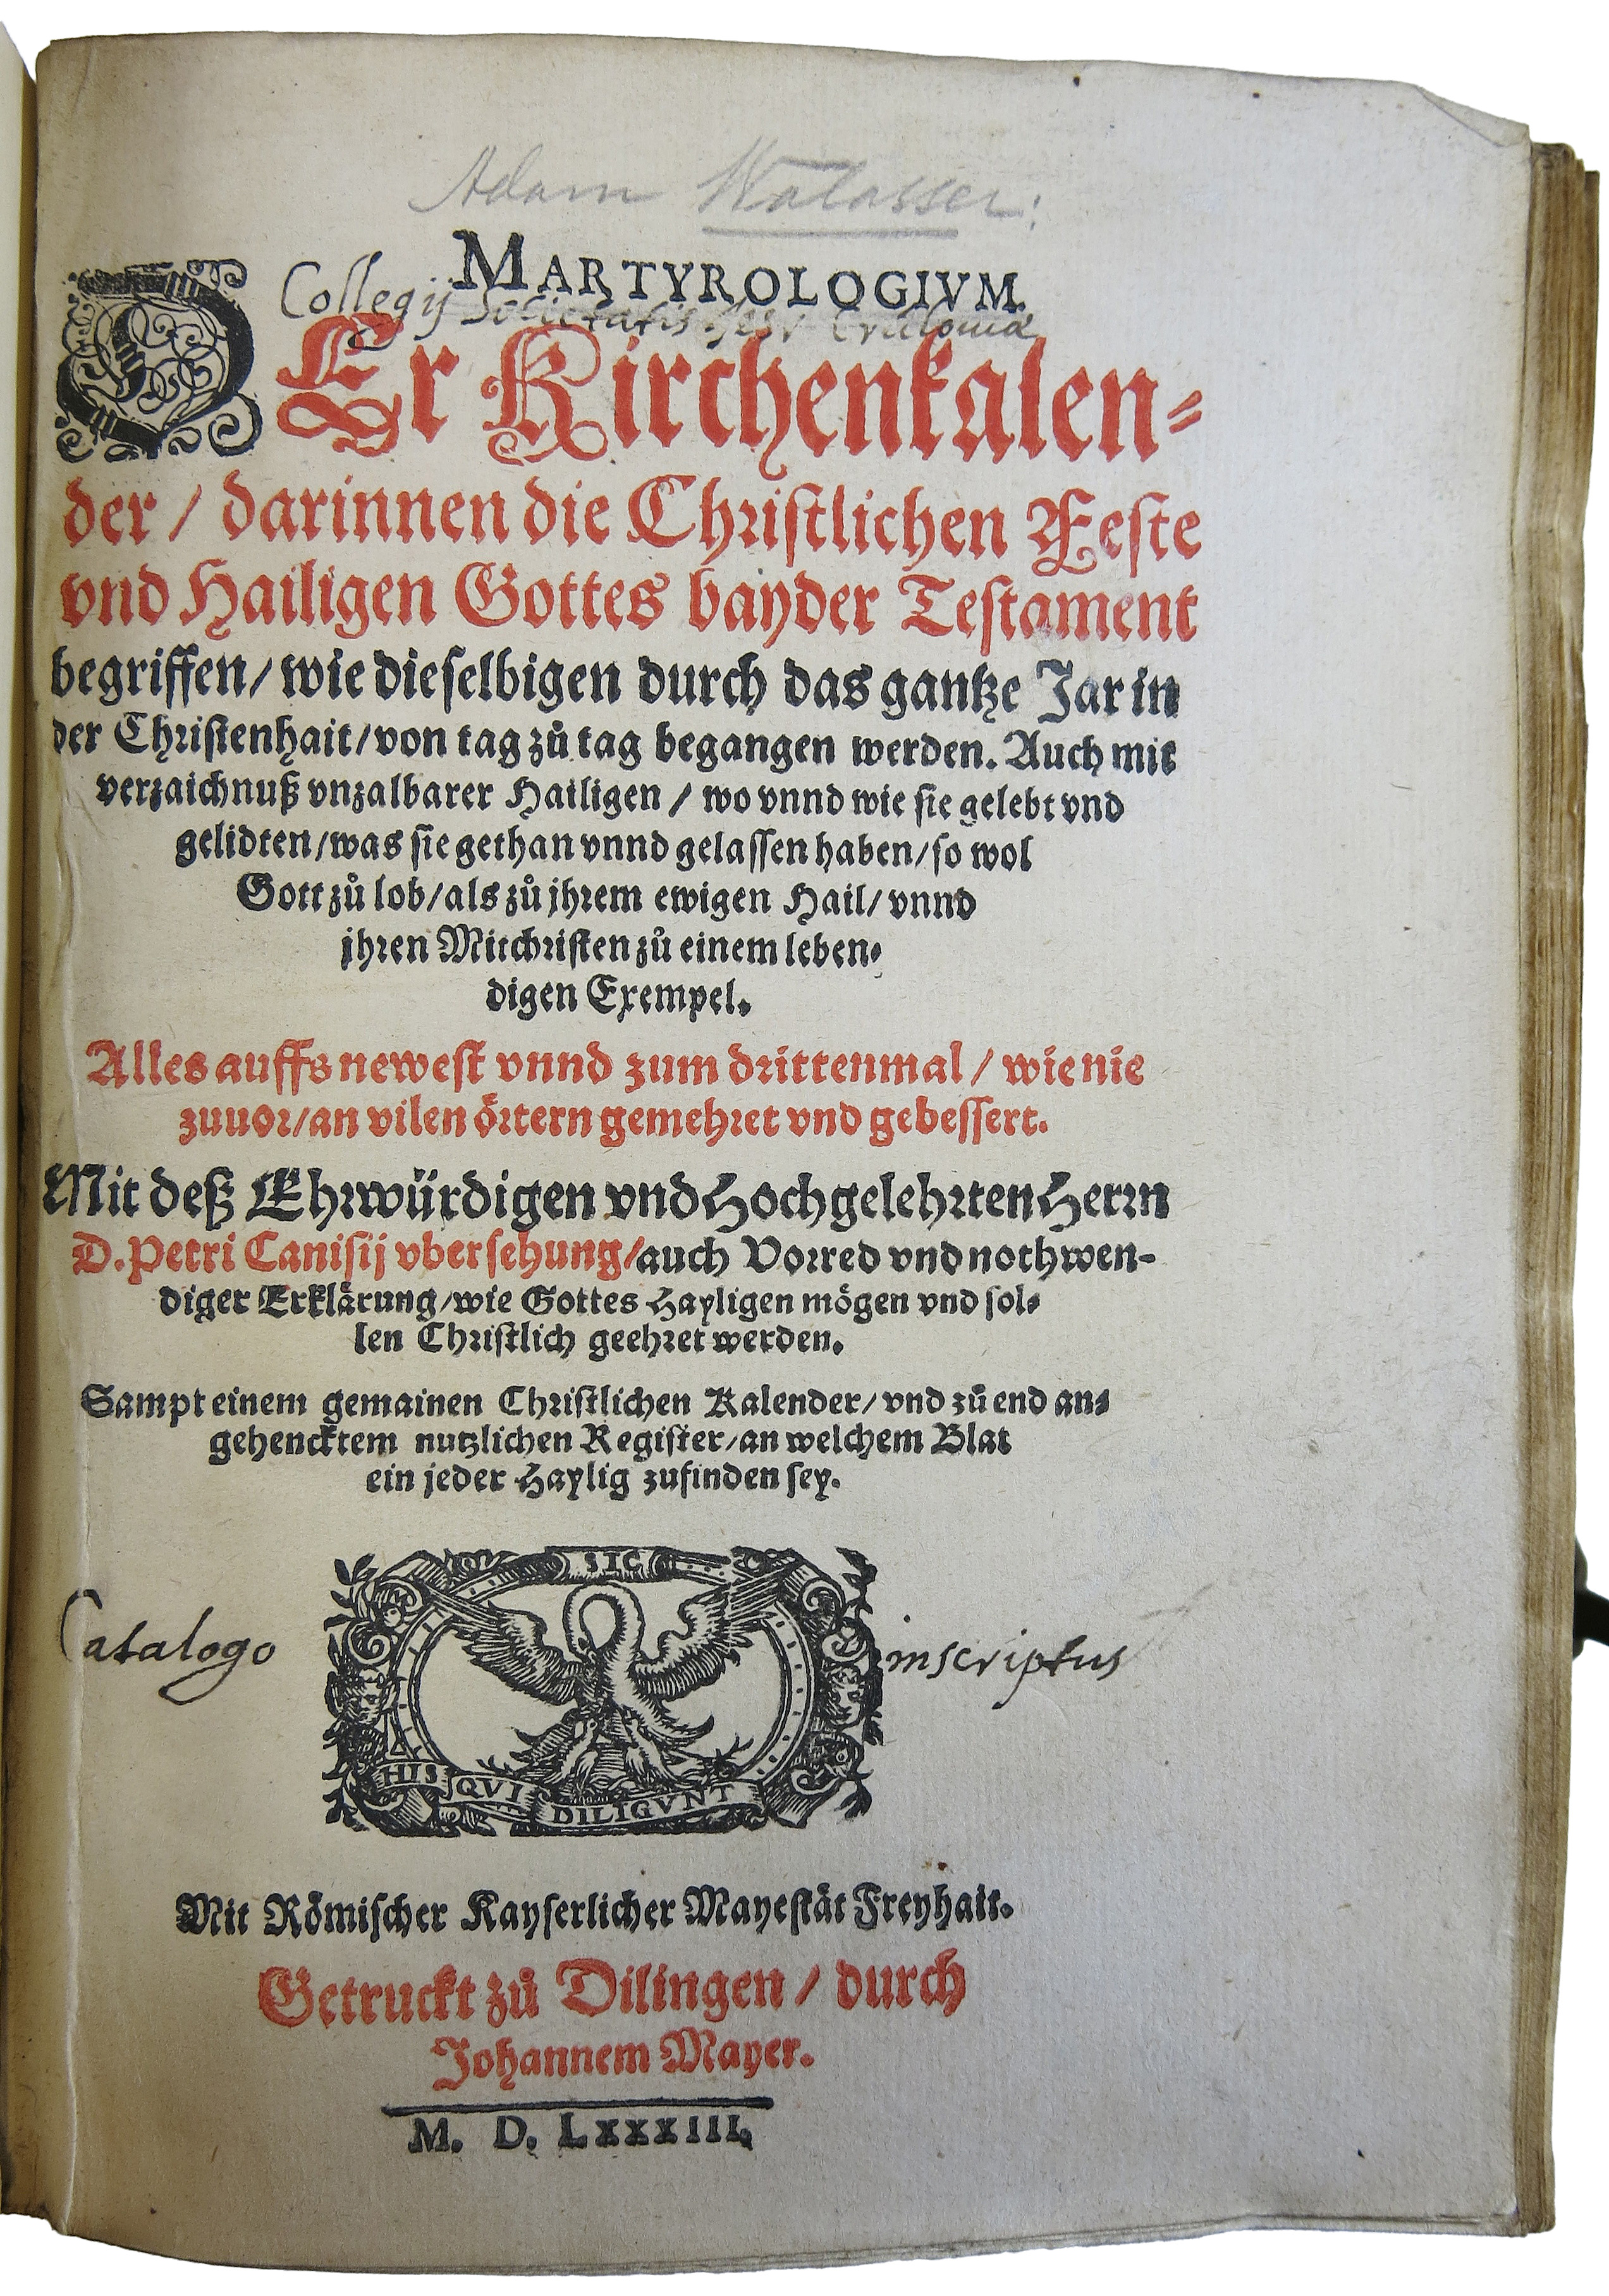 Adam Walasser:
MARTYROLOGIVM.
Collegij Societatis Jesu
DEr Kirchenkalen⸗
der / darinnen die Chriſtlichen Feſte
vnd Hailigen Gottes bayder Teſtament
begriffen/ wie dieſelbigen durch das gantze Jar in
der Chriſtenhait/ von tag zů tag begangen werden. Auch mit
verzaichnuß vnzalbarer Hailigen / wo vnnd wie ſie gelebt vnd
gelidten/ was ſie gethan vnnd gelaſſen haben/ ſo wol
Gott zů lob/ als zů jhrem ewigen Hail/ vnnd
jhren Mitchriſten zů einem leben⸗
digen Exempel.
Alles auffs neweſt vnnd zum drittenmal / wie nie
zuuor/ an vilen örtern gemehret vnd gebeſſert.
Mit deß Ehrwürdigen vnd Hochgelehrten Herrn
D. Petri Caniſij vberſehung/ auch Vorred vnd nothwen-
diger Erklärung/ wie Gottes Hayligen mögen vnd ſol⸗
len Chriſtlich geehret werden.
Sampt einem gemainen Chriſtlichen Kalender/ vnd zů end an⸗
gehencktem nutzlichen Regiſter/ an welchem Blat
ein jeder Haylig zufinden ſey.
SIC
Catalogo inscriptus
HIS QVI DILIGVNT
Mit Römiſcher Kayſerlicher Mayeſtät Freyhait.
Getruckt zů Dilingen / durch
Johannem Mayer.
M. D. LXXXIII.